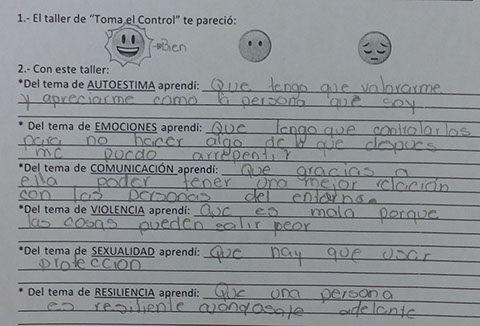 1.- El taller de “Toma el Control” te pareció:
Bien
2.- Con este taller:
*Del tema de AUTOESTIMA aprendí: Que tengo que valorarme
y apreciarme como la persona que soy
* Del tema de EMOCIONES aprendí: Que tengo que controlarlas
para no hacer algo de lo que despues
me puedo arrepentir
*Del tema de COMUNICACIÓN aprendí: Que gracias a
ella poder tener una mejor relación
con las personas del entorno
*Del tema de VIOLENCIA aprendí: Que es mala porque
las cosas pueden salir peor
*Del tema de SEXUALIDAD aprendí: Que hay que usar
protección
* Del tema de RESILIENCIA aprendí: Que una persona
es resiliente adelante